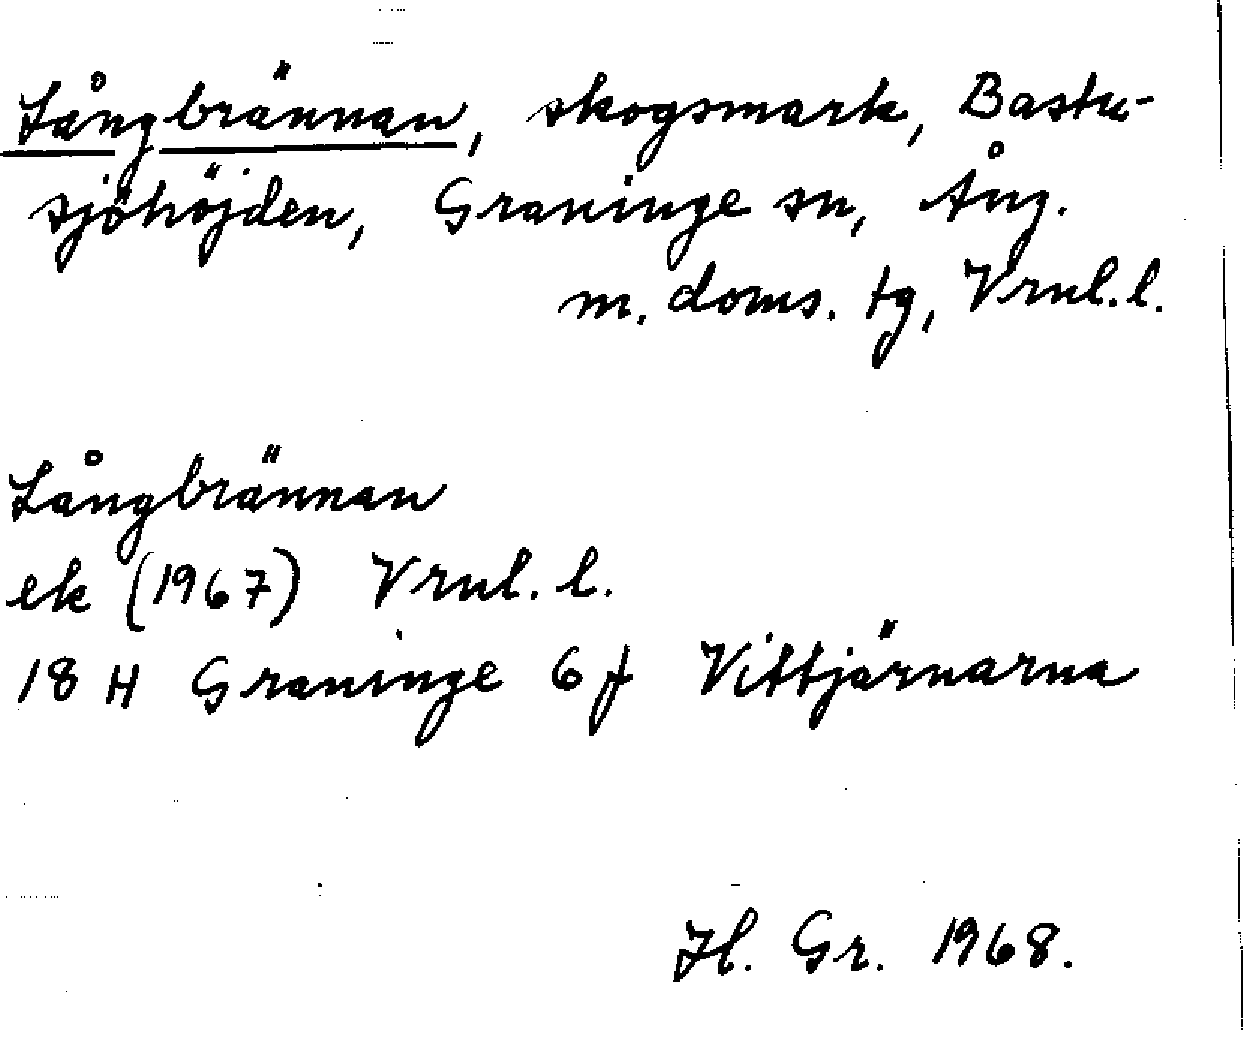 Långbrännan, skogsmark, Bastu-
sjöhöjden, Graninge sn, Ång.
m. doms. tg, Vrnl. l.
Långbrännan
ek (1967) Vrnl. l.
18 H Graninge 6 f Vittjärnarna
Hl. Gr. 1968.